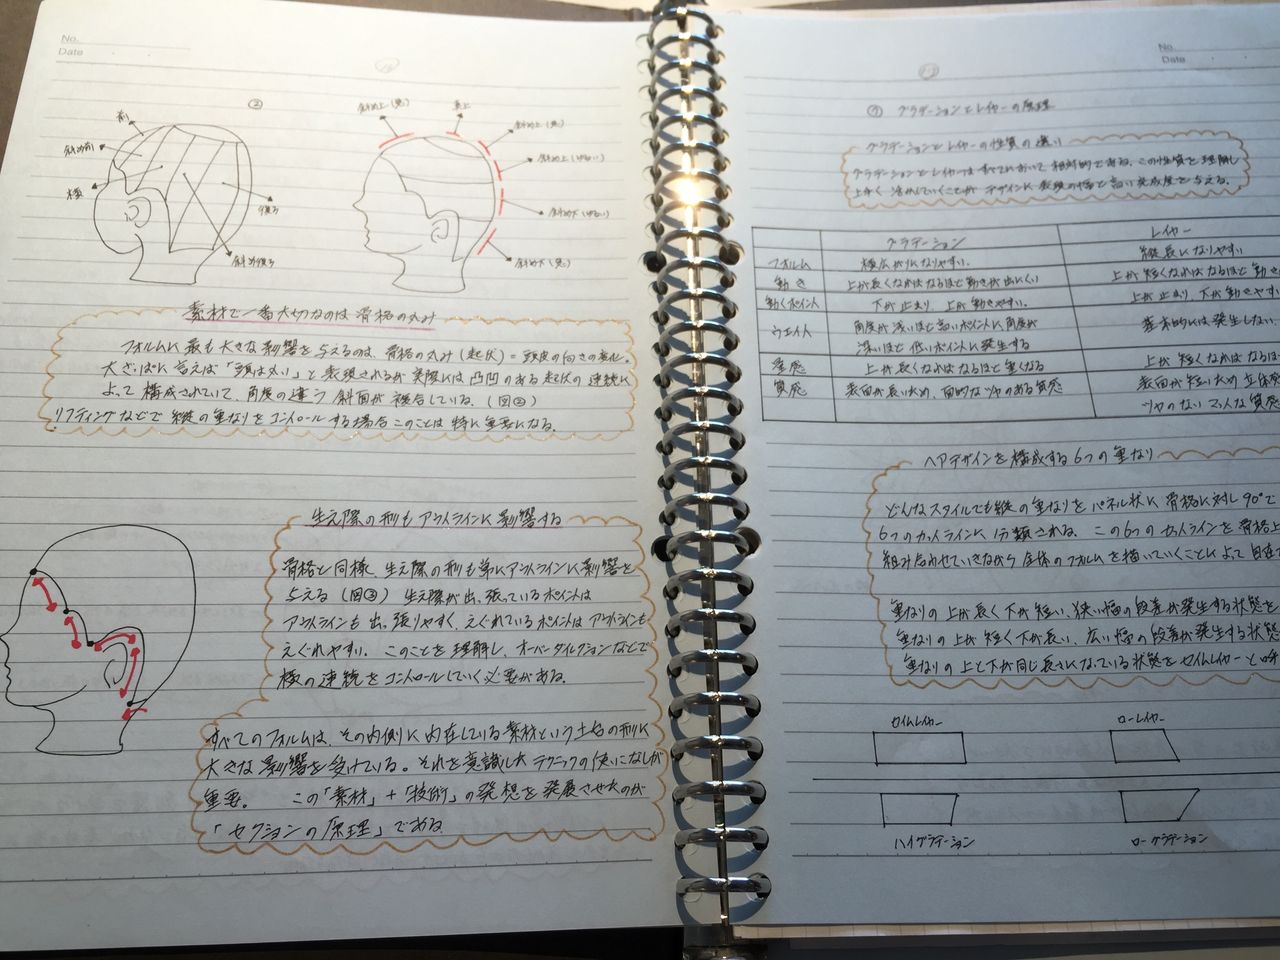 No.
Date
②
前
斜め前
横
後ろ
斜め後ろ
斜め上(急)
真上
斜め上(急)
斜め上(ゆるい)
斜め下(ゆるい)
斜め下(急)
素材で一番大切なのは骨格の丸み
フォルムに最も大きな影響を与えるのは、骨格の丸み(起伏)=頭皮の向きの変化。
大ざっぱに言えば「頭は丸い」と表現されるが実際には凸凹のある起伏の連続に
よって構成されていて、角度の違う斜面が複合している。(図②)
リフティングなどで縦の重なりをコントロールする場合このことは特に重要になる。
生え際の形もアウトラインに影響する
骨格と同様、生え際の形も常にアウトラインに影響を
与える(図③) 生え際が出っ張っているポイントは
アウトラインも出っ張りやすく、えぐれているポイントはアウトラインも
えぐれやすい。このことを理解し、オーバーダイレクションなどで
横の連続をコントロールしていく必要がある。
すべてのフォルムは、その内側に内在している素材という土台の形に
大きな影響を受けている。それを意識したテクニックの使いこなしが
重要。 この「素材」+「技術」の発想を発展させたのが
「セクションの原理」である
No.
Date
グラデーションとレイヤーの原理
グラデーションとレイヤーの性質の違い
グラデーションとレイヤーはすべてにおいて相対的である。この性質を理解し
上手く活かしていくことがデザインに表現の幅と高い完成度を与える。
グラデーション レイヤー
フォルム 横広がりになりやすい。 縦長になりやすい
動き 上が長くなればなるほど動きが出にくい 上が短くなればなるほど動き
動くポイント 下が止まり、上が動きやすい。 上が止まり、下が動きやす
ウエイト 角度が浅いほど高いポイントに角度が 基本的には発生しない
深いほど低いポイントに発生する
量感 上が長くなればなるほど重くなる 上が短くなればなるほ
質感 表面が長いため、面的なツヤのある質感 表面が短いため立体
ツヤのないマットな質感
ヘアデザインを構成する6つの重なり
どんなスタイルでも縦の重なりをパネル状に骨格に対し90°で
6つのカットラインに分類される。この6つのカットラインを骨格上
組み合わせていきながら全体のフォルムを描いていくことによって自在
重なりの上が長く下が短い、狭い幅の段差が発生する状態を
重なりの上が短く下が長い、広い幅の段差が発生する状態
重なりの上と下が同じ長さになっている状態をセイムレイヤーと呼
セイムレイヤー
ローレイヤー
ハイグラデーション
ローグラデーション